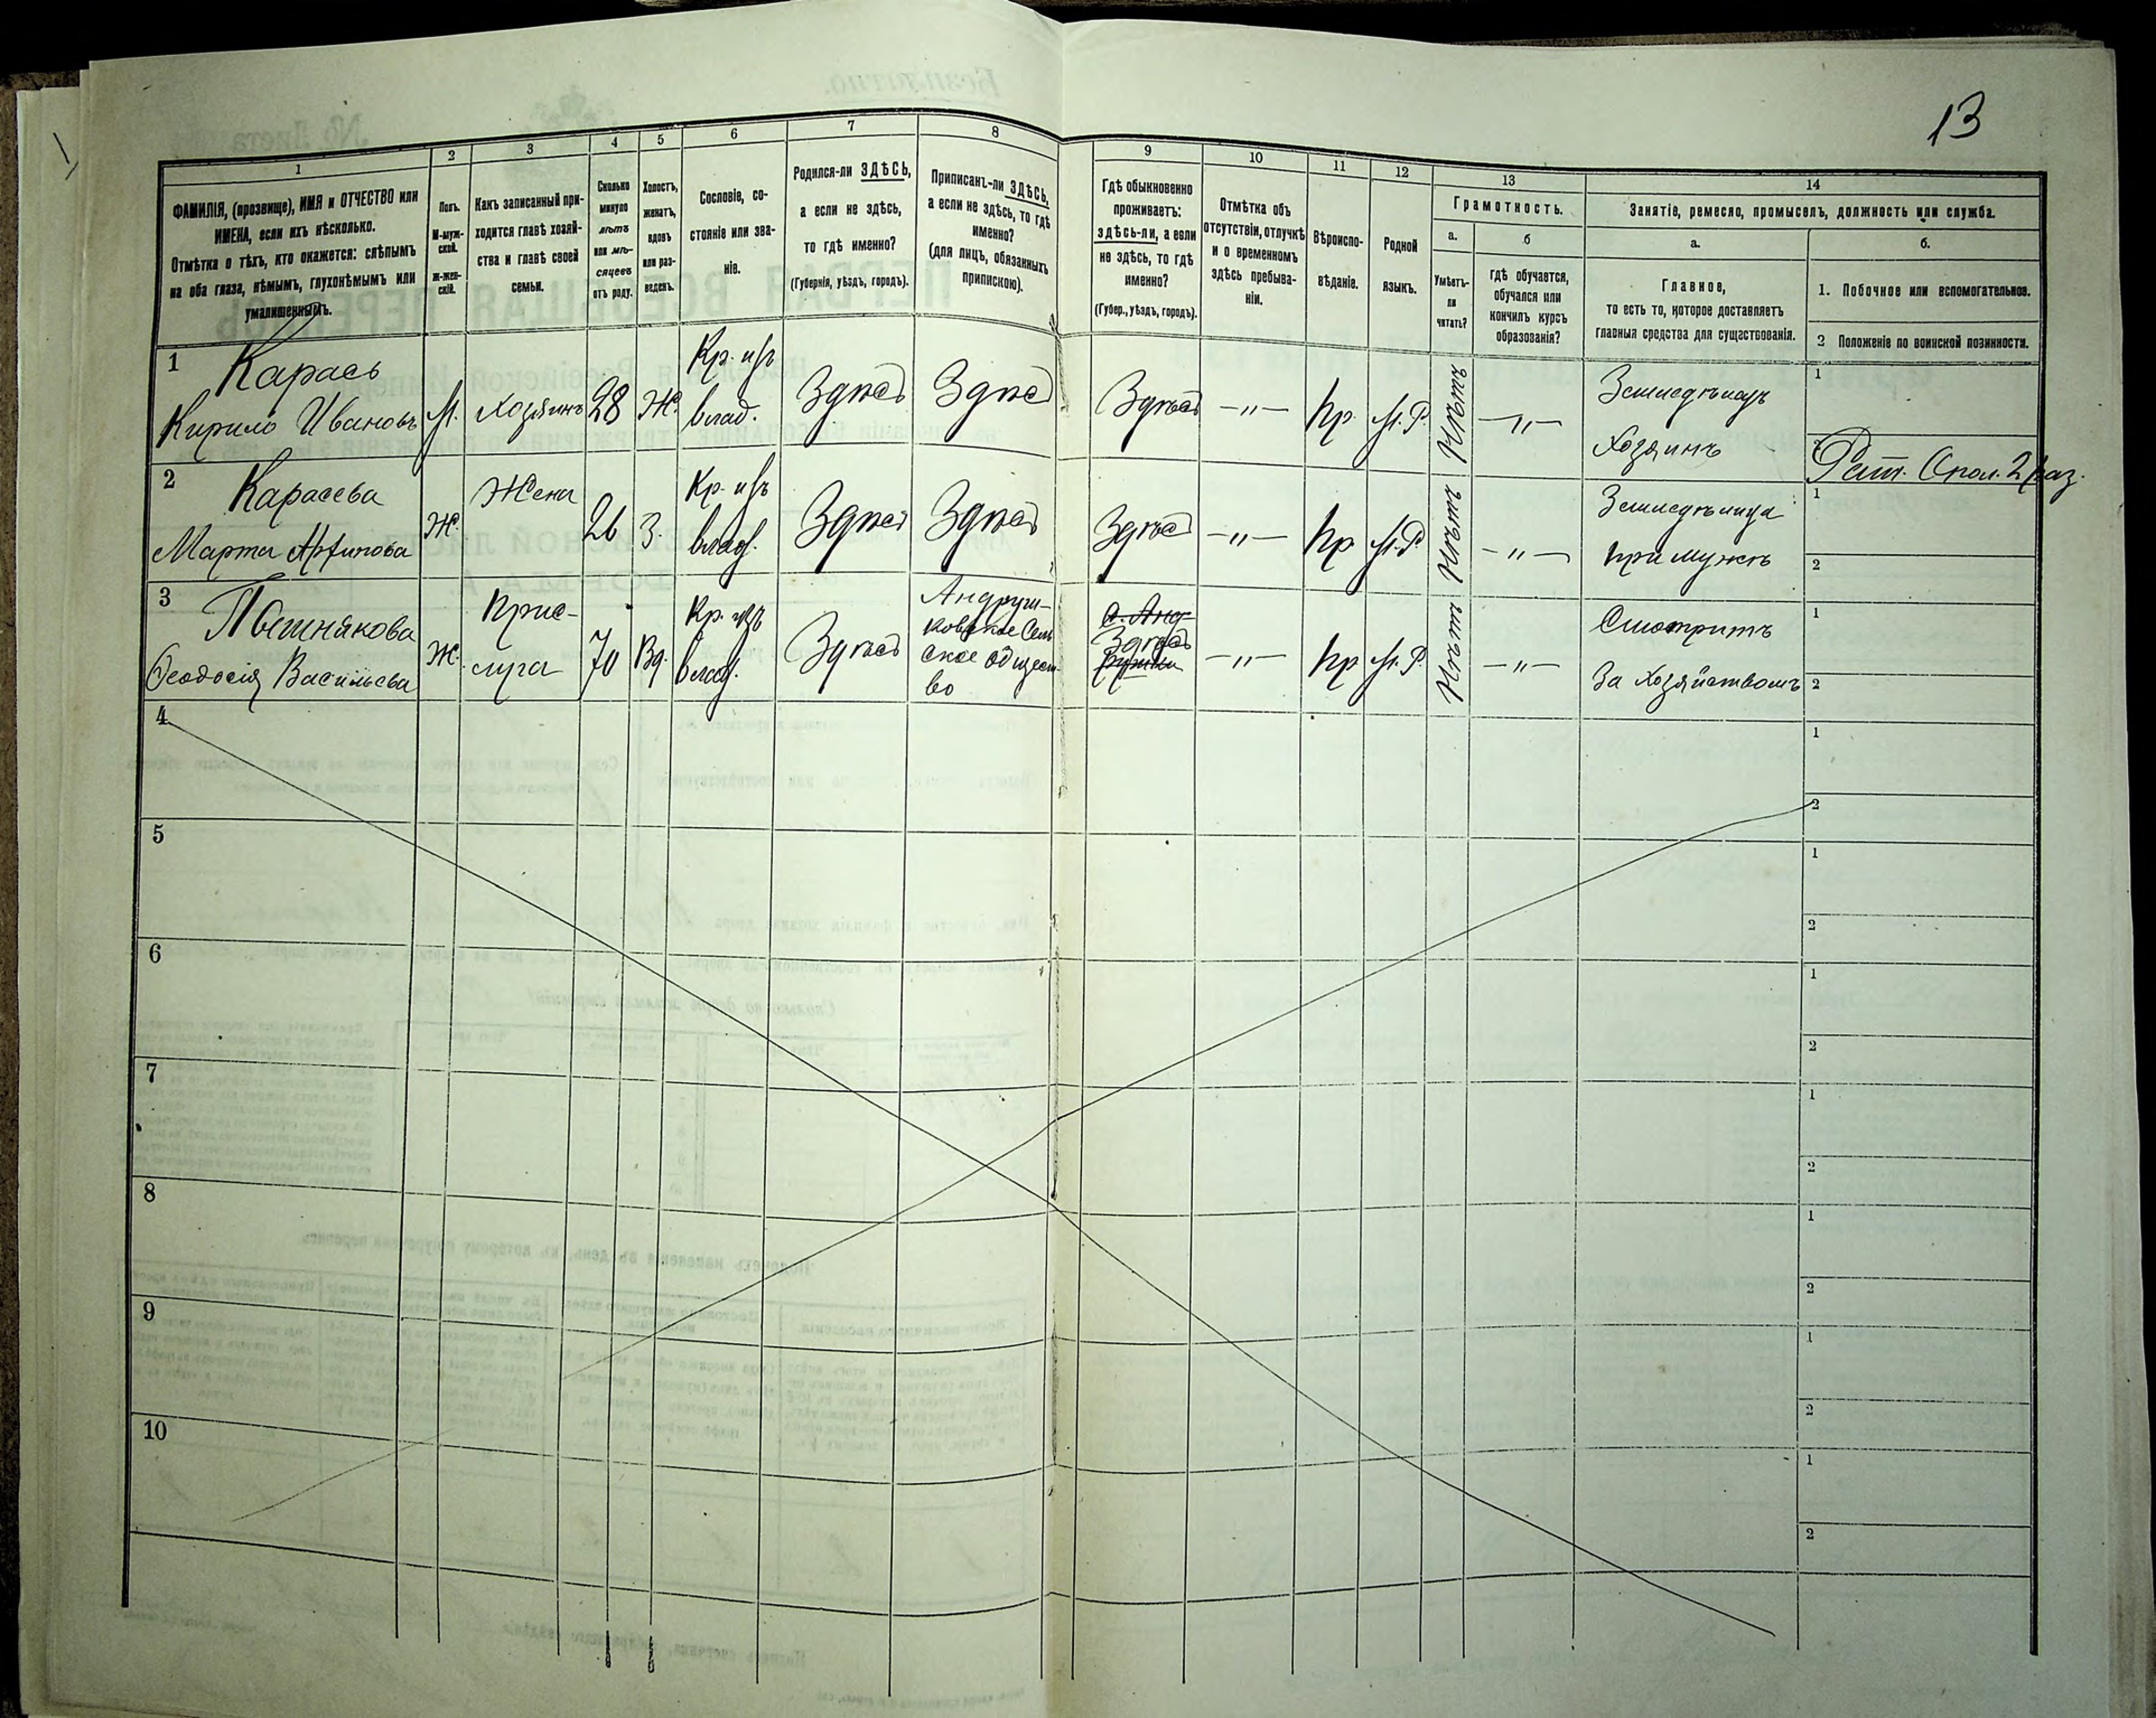 13
1 2 3 4 5 6 7 8 9 10 11 12 13 14
ФАМИЛІЯ, (прозвище), ИМЯ и ОТЧЕСТВО или
ИМЕНА, если ихъ нѣсколько.
Отмѣтка о тѣхъ, кто окажется: слѣпымъ
на оба глаза, нѣмымъ, глухонѣмымъ или
умалишеннымъ.
Полъ.
М-муж-
ской.
Ж-жен-
скій.
Какъ записанный при-
ходится главѣ хозяй-
ства и главѣ своей
семьи.
Сколько
минуло
лѣтъ
или мѣ-
сяцевъ
отъ роду.
Холостъ,
женатъ,
вдовъ
или раз-
веденъ.
Сословіе, со-
стояніе или зва-
ніе.
Родился-ли ЗДѢСЬ,
а если не здѣсь,
то гдѣ именно?
(Губернія, уѣздъ, городъ).
Приписанъ-ли ЗДѢСЬ,
а если не здѣсь, то гдѣ
именно?
(для лицъ, обязанныхъ
припискою).
Гдѣ обыкновенно
проживаетъ:
здѣсь-ли, а если
не здѣсь, то гдѣ
именно?
(Губер., уѣздъ, городъ).
Отмѣтка объ
отсутствіи, отлучкѣ
и о временномъ
здѣсь пребыва-
ніи.
Вѣроиспо-
вѣданіе.
Родной
языкъ.
Грамотность.
а. б
Умѣетъ-
ли
читать?
гдѣ обучается,
обучался или
кончилъ курсъ
образованія?
Занятіе, ремесло, промыселъ, должность или служба.
а. б.
Главное,
то есть то, которое доставляетъ
главныя средства для существованія.
1. Побочное или вспомогательное.
2 Положеніе по воинской повинности.
1 Карась
Кирило Ивановъ
М.
Хозяинъ
28
Ж.
Кр. изъ
влад.
Здѣсь
Здѣсь
Здѣсь
—„—
Пр.
М.Р.
Нѣтъ
—„—
Земледѣлецъ
Хозяинъ
1
2 Рат. Опол. 2 раз.
2 Карасева
Марта
Ж.
Жена
26
З.
Кр. изъ
влад.
Здѣсь
Здѣсь
Здѣсь
—„—
Пр
М.Р.
Нѣтъ
—„—
Земледѣлица
при мужѣ
1
2
3
Феодосія Васильева
Ж.
Прис-
луга
70
Вд.
Кр. изъ
влад.
Здѣсь
Андруш-
ковское Сель
ское общест-
во
Здѣсь
—„—
Пр
М.Р.
Нѣтъ
—„—
Смотритъ
За Хозяйствомъ
1
2
4
1
2
5
1
2
6
1
2
7
1
2
8
1
2
9
1
2
10
1
2